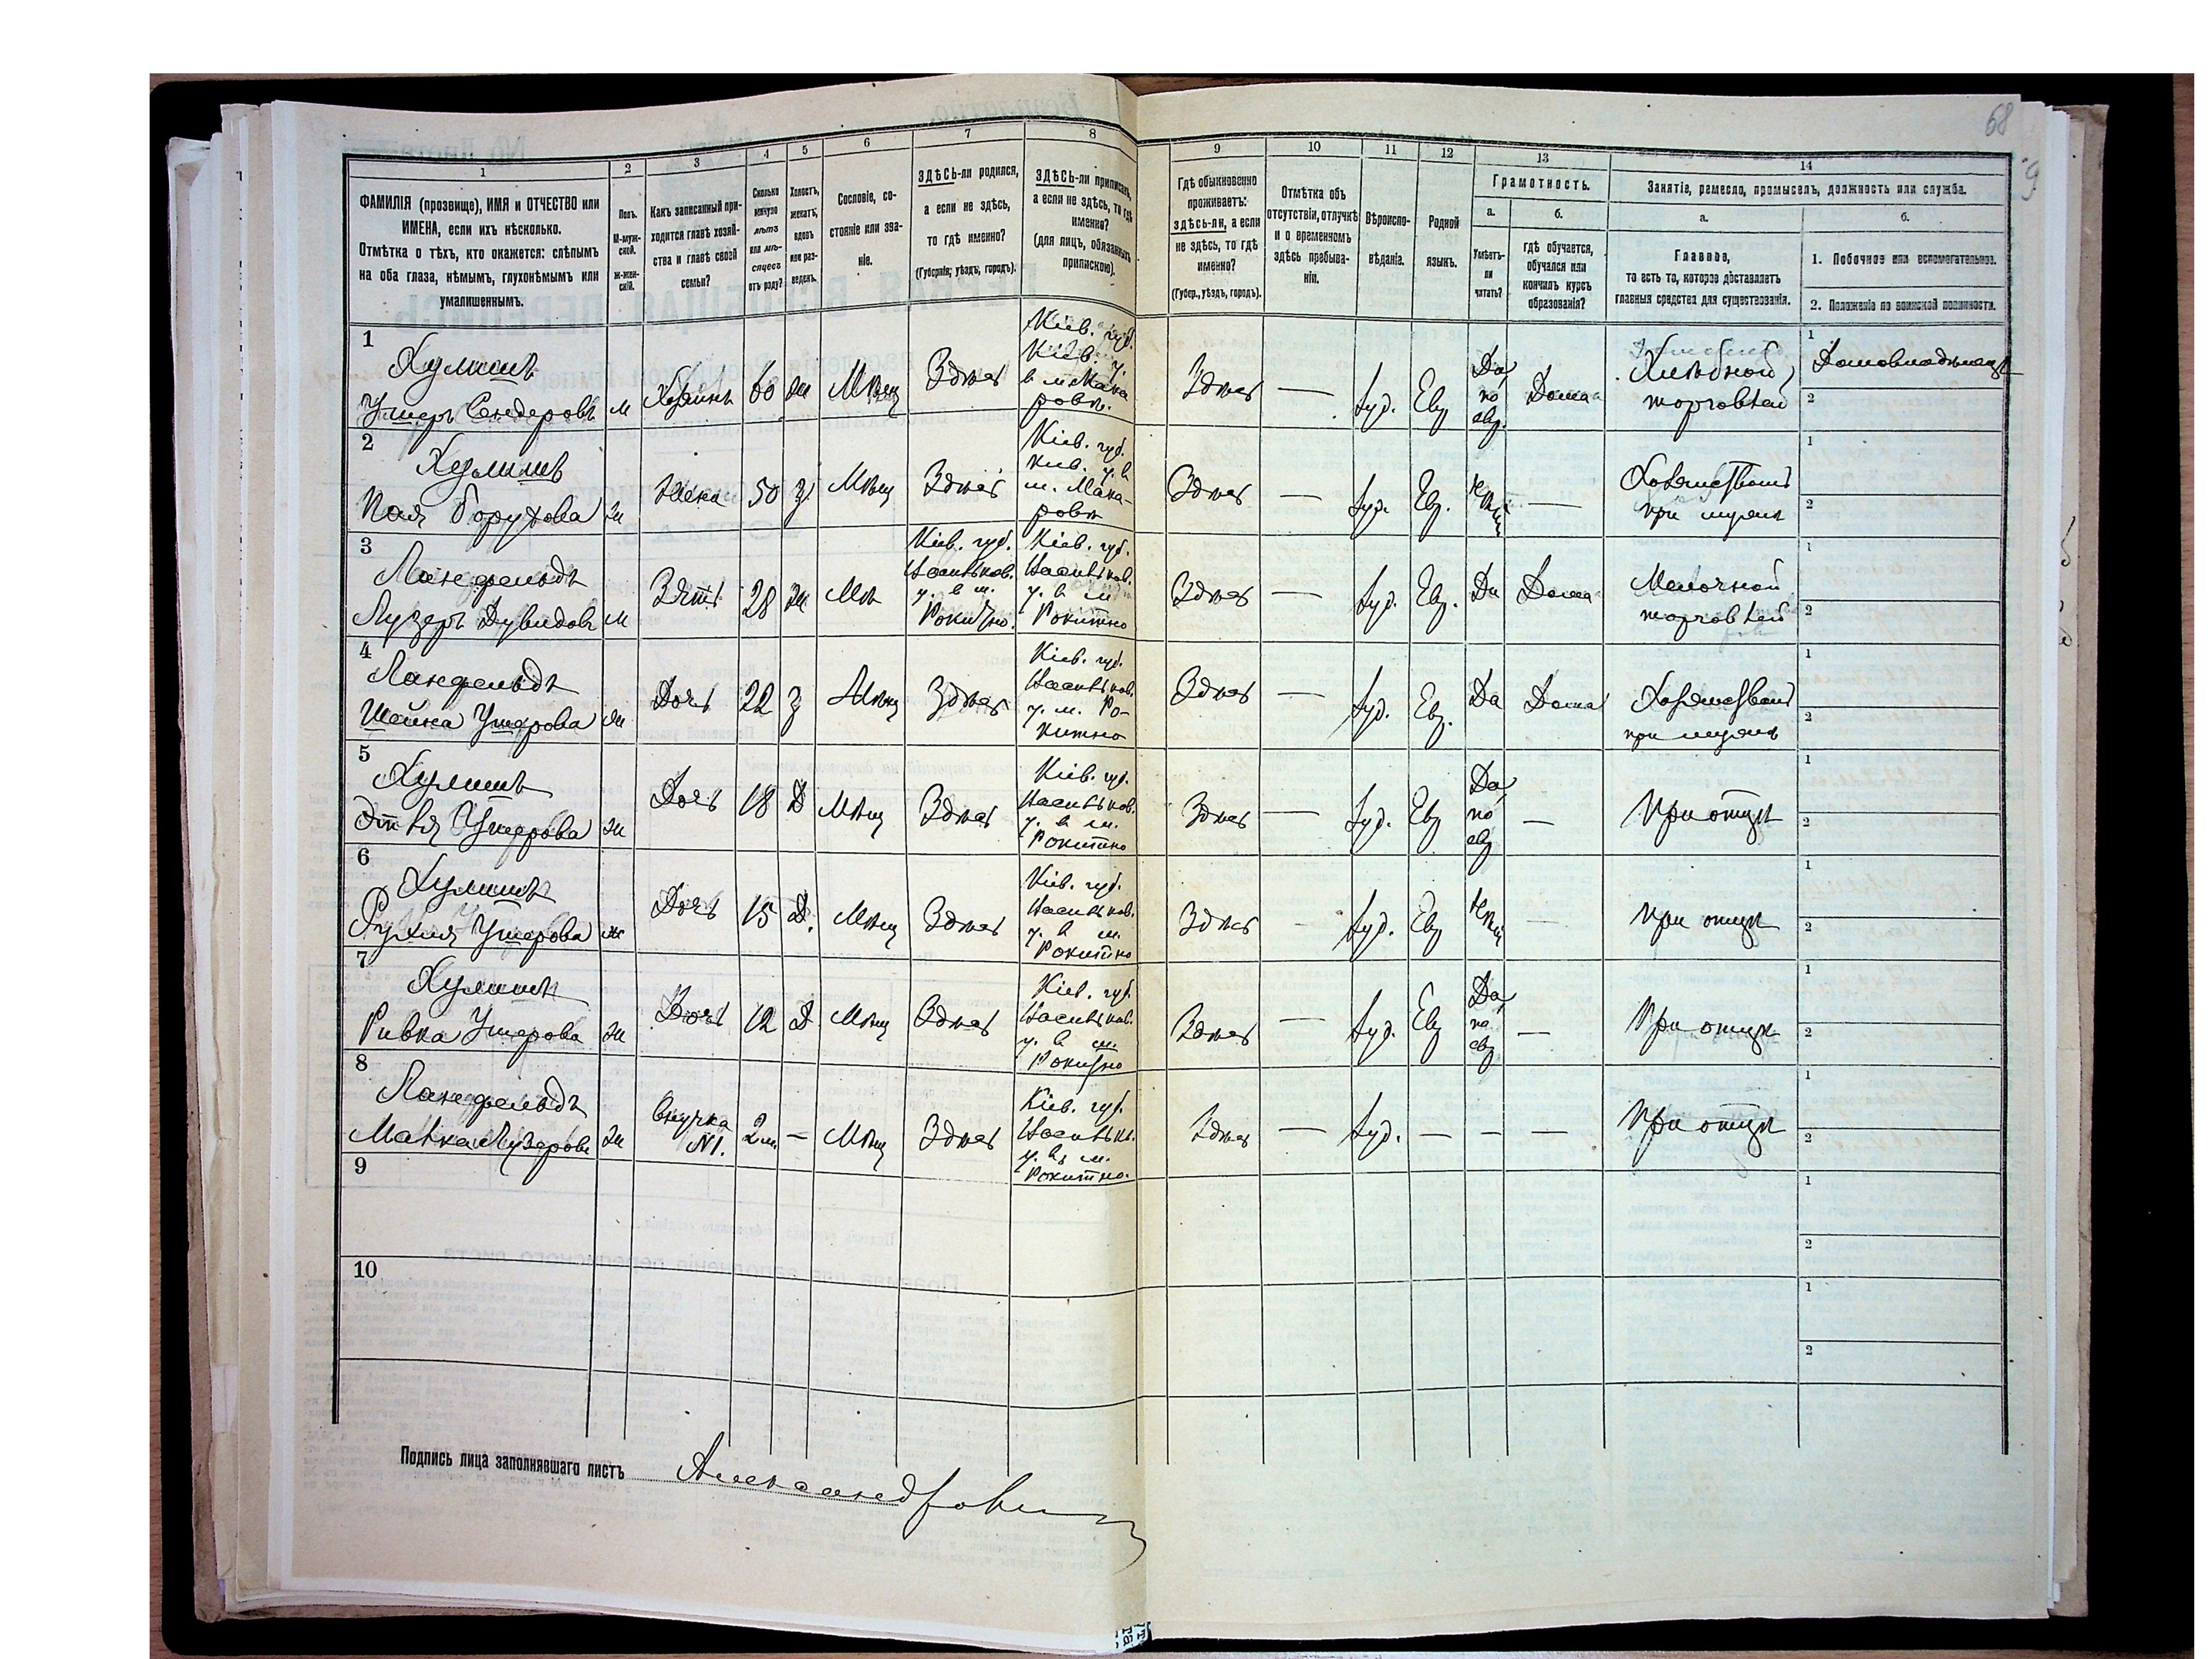 68
9
1 2 3 4 5 6 7 8 9 10 11 12 13 14
ФАМИЛІЯ (прозвище), ИМЯ и ОТЧЕСТВО или
ИМЕНА, если ихъ нѣсколько.
Отмѣтка о тѣхъ, кто окажется: слѣпымъ
на оба глаза, нѣмымъ, глухонѣмымъ или
умалишеннымъ.
Полъ.
М-муж-
ской.
Ж-жен-
скій.
Какъ записанный при-
ходится главѣ хозяй-
ства и главѣ своей
семьи?
Сколько
минуло
лѣтъ
или мѣ-
сяцевъ
отъ роду?
Холостъ,
женатъ,
вдовъ
или раз-
веденъ.
Сословіе, со-
стояніе или зва-
ніе.
ЗДѢСЬ-ли родился,
а если не здѣсь,
то гдѣ именно?
(Губернія, уѣздъ, городъ).
ЗДѢСЬ-ли приписанъ,
а если не здѣсь, то гдѣ
именно?
(для лицъ, обязанныхъ
припискою).
Гдѣ обыкновенно
проживаетъ:
здѣсь-ли, а если
не здѣсь, то гдѣ
именно?
(Губер., уѣздъ, городъ).
Отмѣтка объ
отсутствіи, отлучкѣ
и о временномъ
здѣсь пребыва-
ніи.
Вѣроиспо-
вѣданіе.
Родной
языкъ.
Грамотность.
а.
Умѣетъ-
ли
читать?
б.
гдѣ обучается,
обучался или
кончилъ курсъ
образованія?
Занятіе, ремесло, промыселъ, должность или служба.
а.
Главное,
то есть то, которое доставляетъ
главныя средства для существованія.
б.
1. Побочное или вспомогательное.
2. Положеніе по воинской повинности.
1
Хулишъ
Ушеръ Сендеровъ
М
Хозяинъ
60
Ж
Мѣщ
Здѣсь
Кіев. губ.
Кіев. у.
в м Мака
ровъ.
Здѣсь
—
Іуд.
Евр
Да,
по
евр.
Дома
Хлѣбной
торговлей
1
Домовладѣлецъ
2
2
Хулишъ
Пая Борухова
Ж
Жена
50
З
Мѣщ
Здѣсь
Кіев. губ.
Кіев. у. в
м. Мака-
ровъ
Здѣсь
—
Іуд.
Евр.
Нѣтъ
—
Хозяйствомъ
при мужѣ
1
2
3
Ланфельдъ
Лузеръ Дувидовъ
М
Зять
28
Ж
Мѣщ
Кіев. губ.
Васильков.
у. в м.
Рокитно.
Кіев. губ.
Васильков.
у. в м
Рокитно
Здѣсь
—
Іуд.
Евр.
Да
Дома
Мелочной
торговлей
1
2
4
Ланфельдъ
Шейка Ушерова
Ж
Дочь
22
З
Мѣщ
Здѣсь
Кіев. губ.
Васильков.
у. м. Ро-
китно
Здѣсь
—
Іуд.
Евр.
Да
Дома
Хозяйствомъ
при мужѣ
1
2
5
Хулишъ
Этля Ушерова
Ж
Дочь
18
Д
Мѣщ
Здѣсь
Кіев. губ.
Васильков.
у. в м.
Рокитно
Здѣсь
—
Іуд.
Евр
Да,
по
евр
—
При отцѣ
1
2
6
Хулишъ
Рухля Ушерова
Ж
Дочь
15
Д.
Мѣщ
Здѣсь
Кіев. губ.
Васильков.
у. в м.
Рокитно
Здѣсь
-
Іуд.
Евр
Нѣтъ
—
При отцѣ
1
2
7
Хулишъ
Ривка Ушерова
Ж
Дочь
12
Д
Мѣщ
Здѣсь
Кіев. губ.
Васильков.
у. в м.
Рокитно
Здѣсь
—
Іуд.
Евр
Да,
по
евр
—
При отцѣ
1
2
8
Ланфельдъ
Малка Лузерова
Ж
Внучка
№1.
2 м
—
Мѣщ
Здѣсь
Кіев. губ.
Васильк.
у. в м.
Рокитно.
Здѣсь
—
Іуд.
—
—
—
При отцѣ
1
2
9
1
2
10
1
2
Подпись лица заполнявшаго листъ